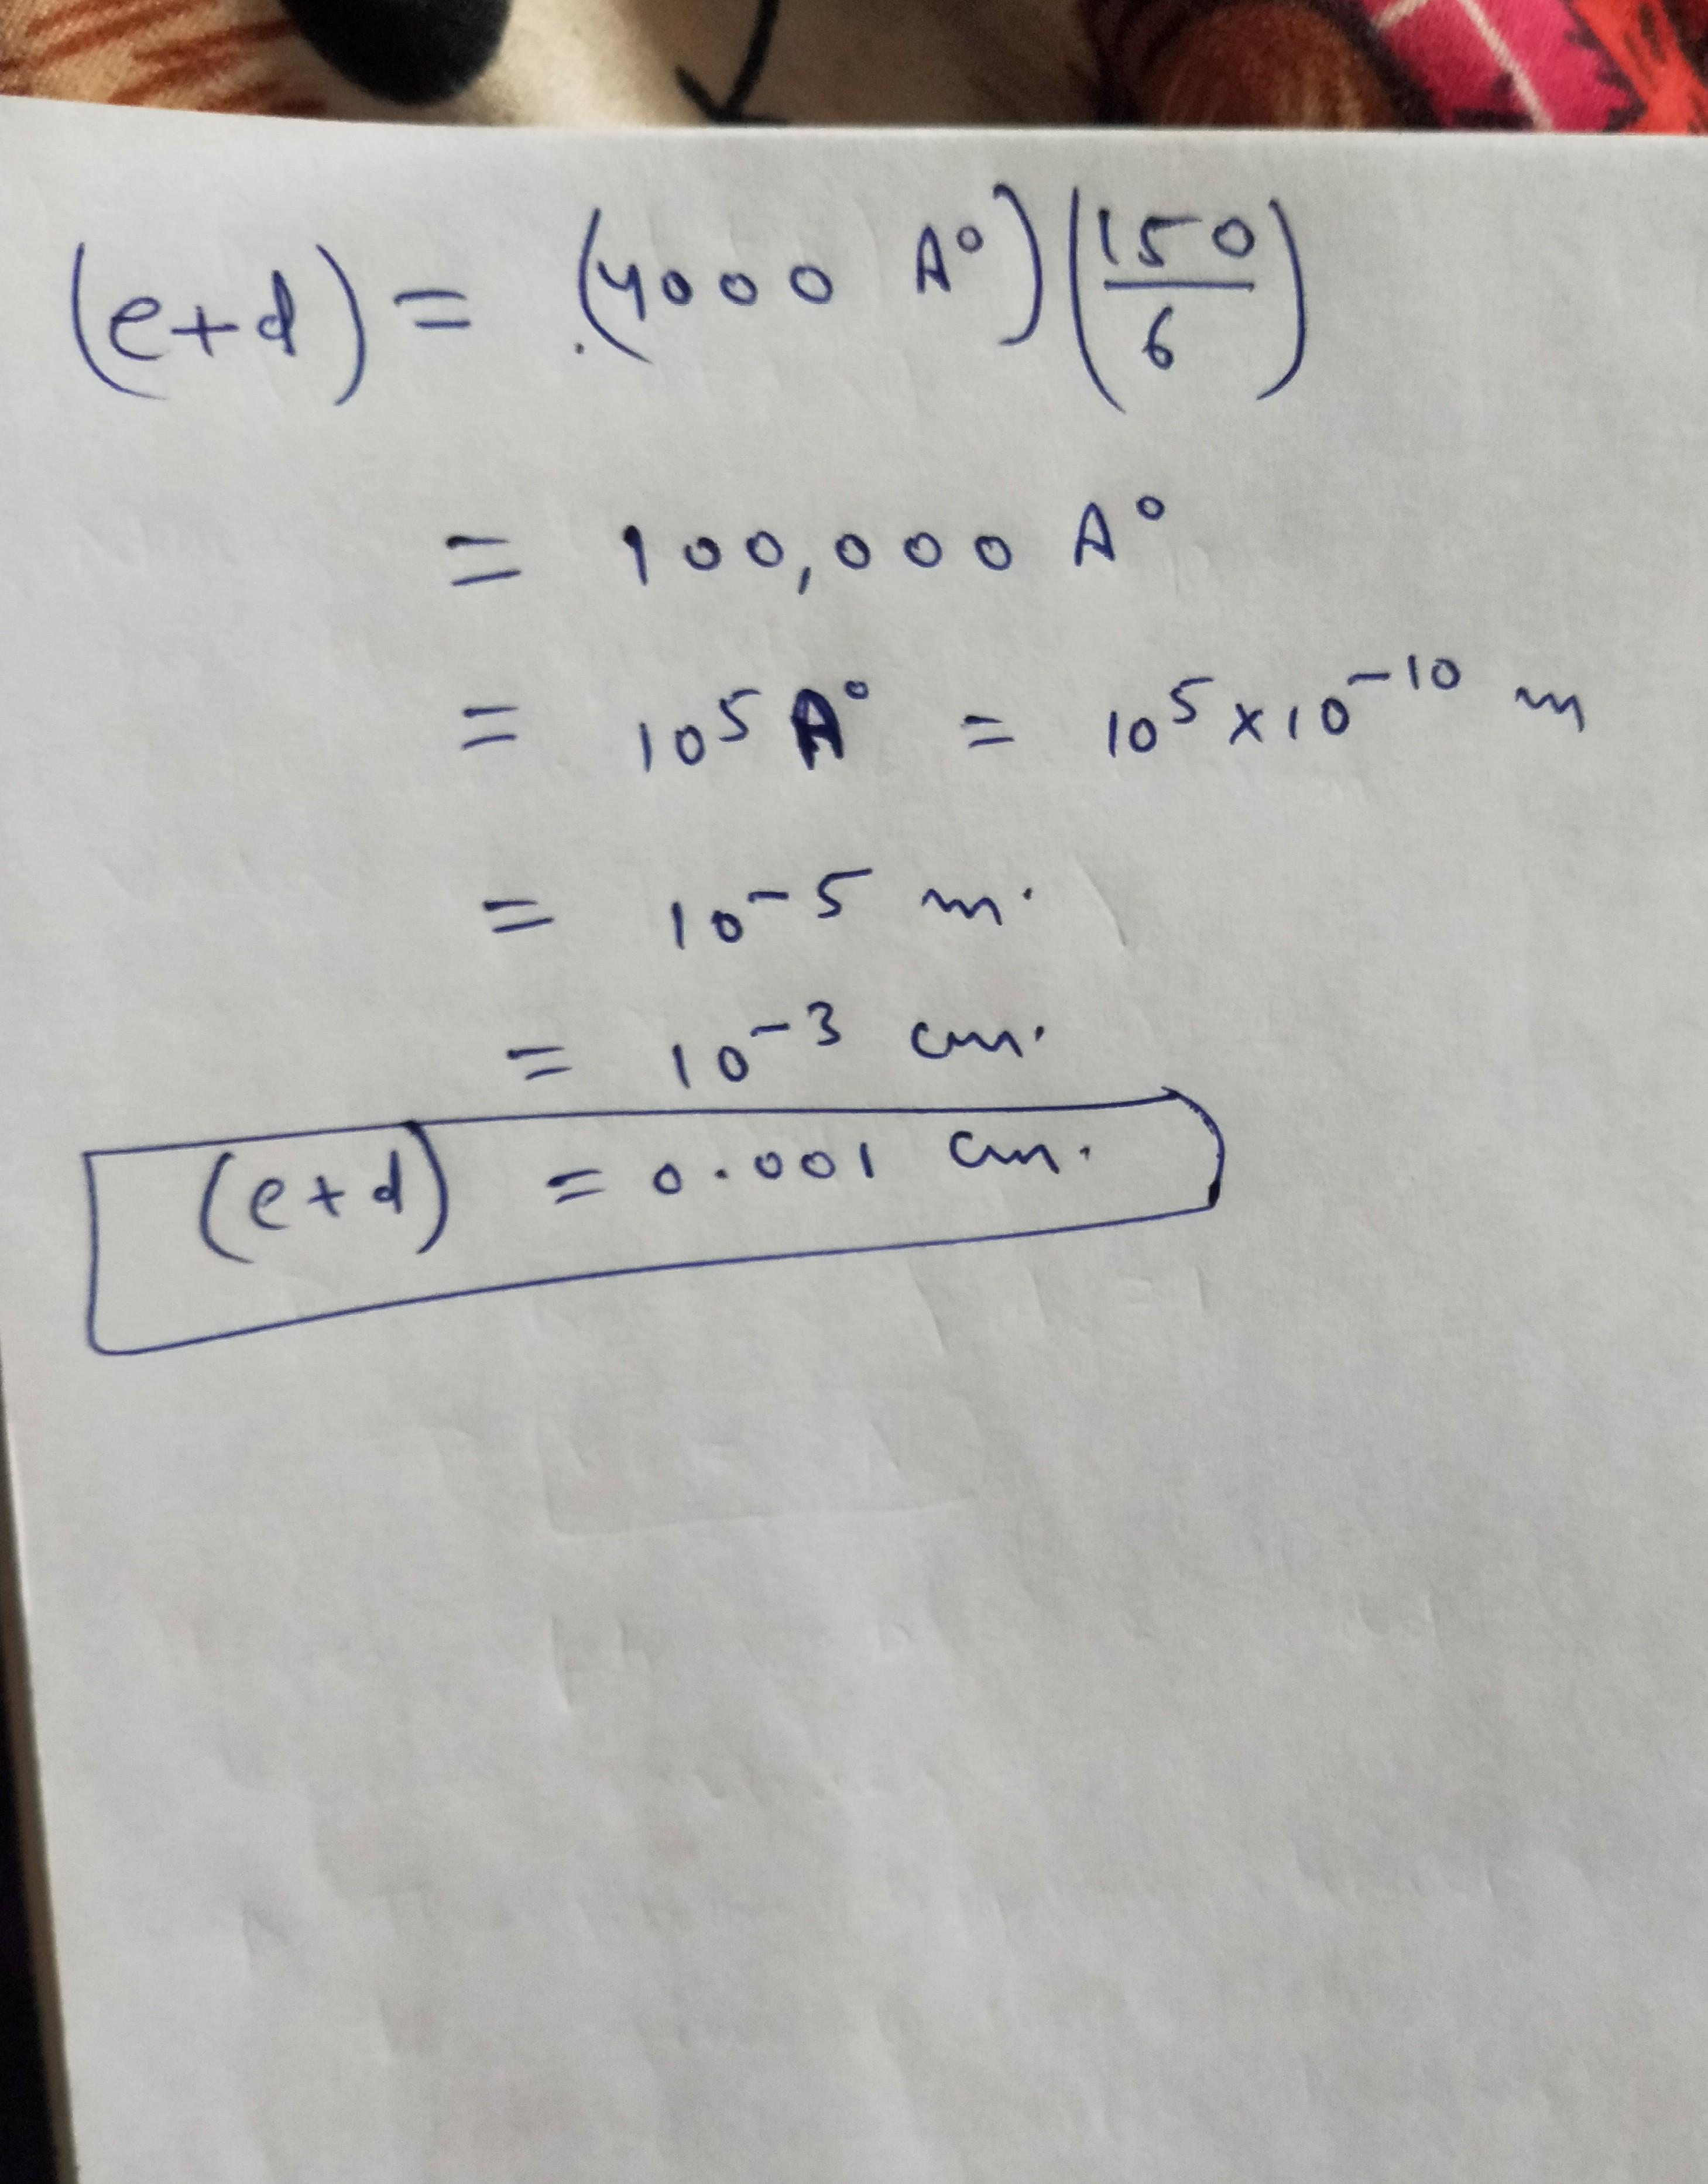 (e+d) = (4000 A°) (150/6)
= 100,000 A°
= 10⁵ A° = 10⁵ x 10⁻¹⁰ m
= 10⁻⁵ m.
= 10⁻³ cm.
(e+d) = 0.001 cm.